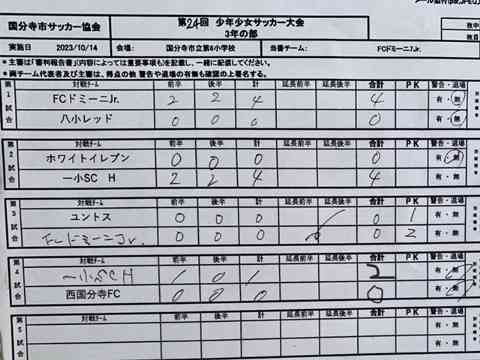 国分寺市サッカー協会 第24回 少年少女サッカー大会
3年の部
実施日 2023/10/14 会場: 国分寺市立第6小学校 当番チーム: FCドミーニJr.
*主審は「審判報告書」(内容によっては重要事項も)を記載し、一緒に配信してください。
*両チーム代表者及び主審は、得点の他 警告や退場の有無も確認の上署名する。
第1試合 対戦チーム 前半 後半 計 延長前半 延長後半 合計 PK 警告・退場
FCドミーニJr. 2 2 4 4 有・無
八小レッド 0 0 0 0 有・無
第2試合 対戦チーム 前半 後半 計 延長前半 延長後半 合計 PK 警告・退場
ホワイトイレブン 0 0 0 0 有・無
一小SC H 2 2 4 4 有・無
第3試合 対戦チーム 前半 後半 計 延長前半 延長後半 合計 PK 警告・退場
ユントス 0 0 0 0 1 有・無
FCドミーニJr. 0 0 0 0 2 有・無
第4試合 対戦チーム 前半 後半 計 延長前半 延長後半 合計 PK 警告・退場
一小SC H 1 0 1 2 有・無
西国分寺FC 0 0 0 0 有・無
第5試合 対戦チーム 前半 後半 計 延長前半 延長後半 合計 PK 警告・退場
有・無